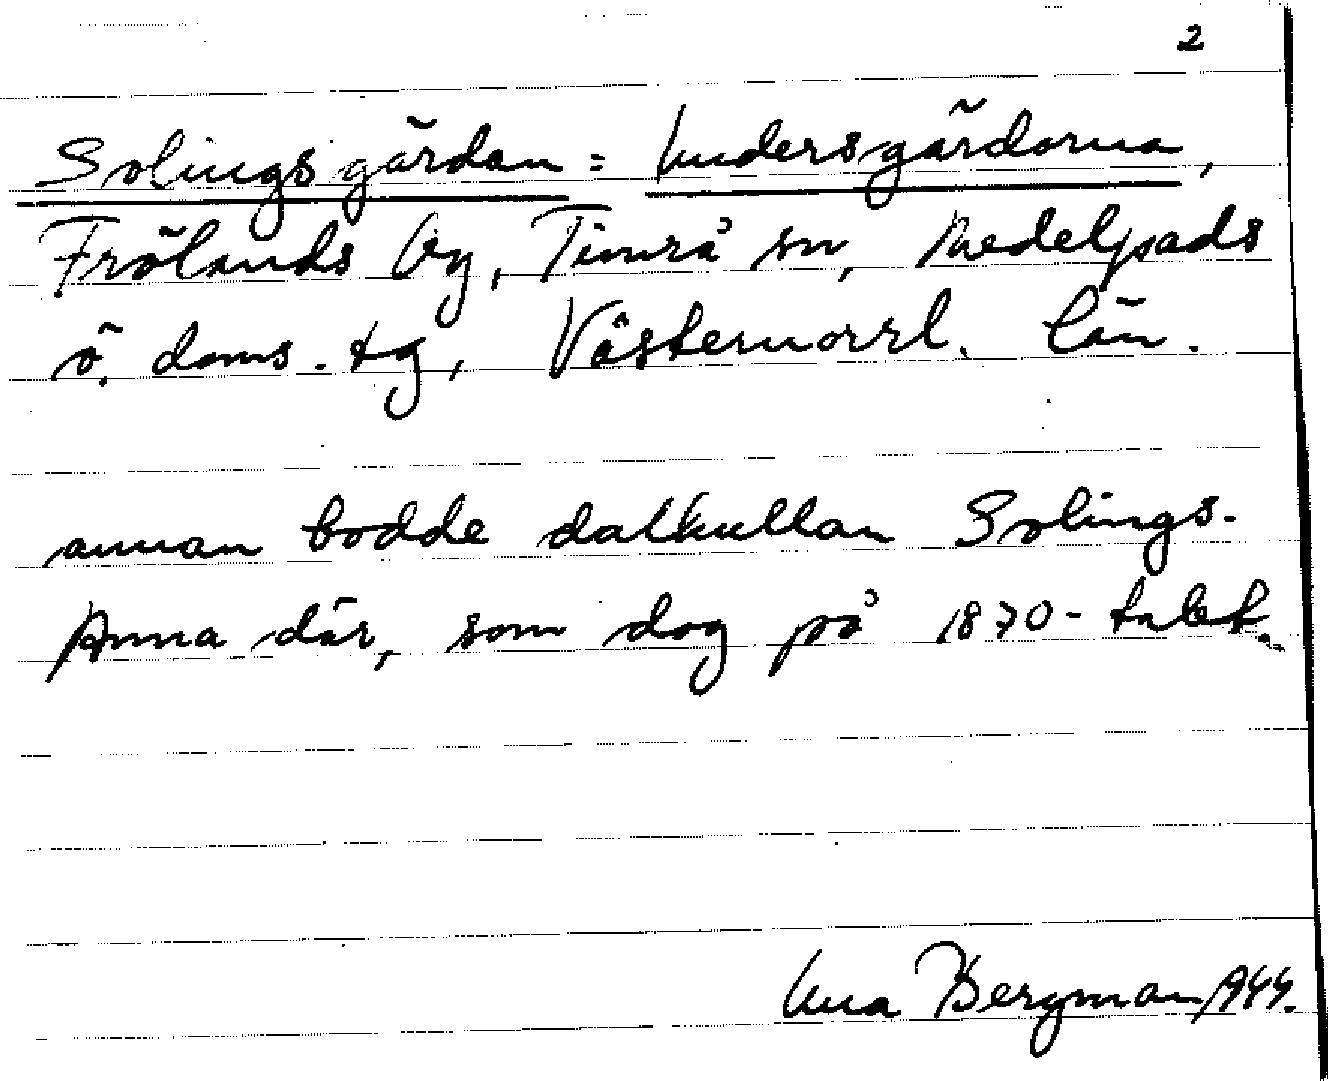 2
Solingsgärdan = Undersgärdorna,
Frölands by, Timrå sn, Medelpads
ö. doms. tg, Västernorrl. län.
annan bodde dalkullan Solings-
Anna där, som dog på 1870-talet.
Bergman 1944.